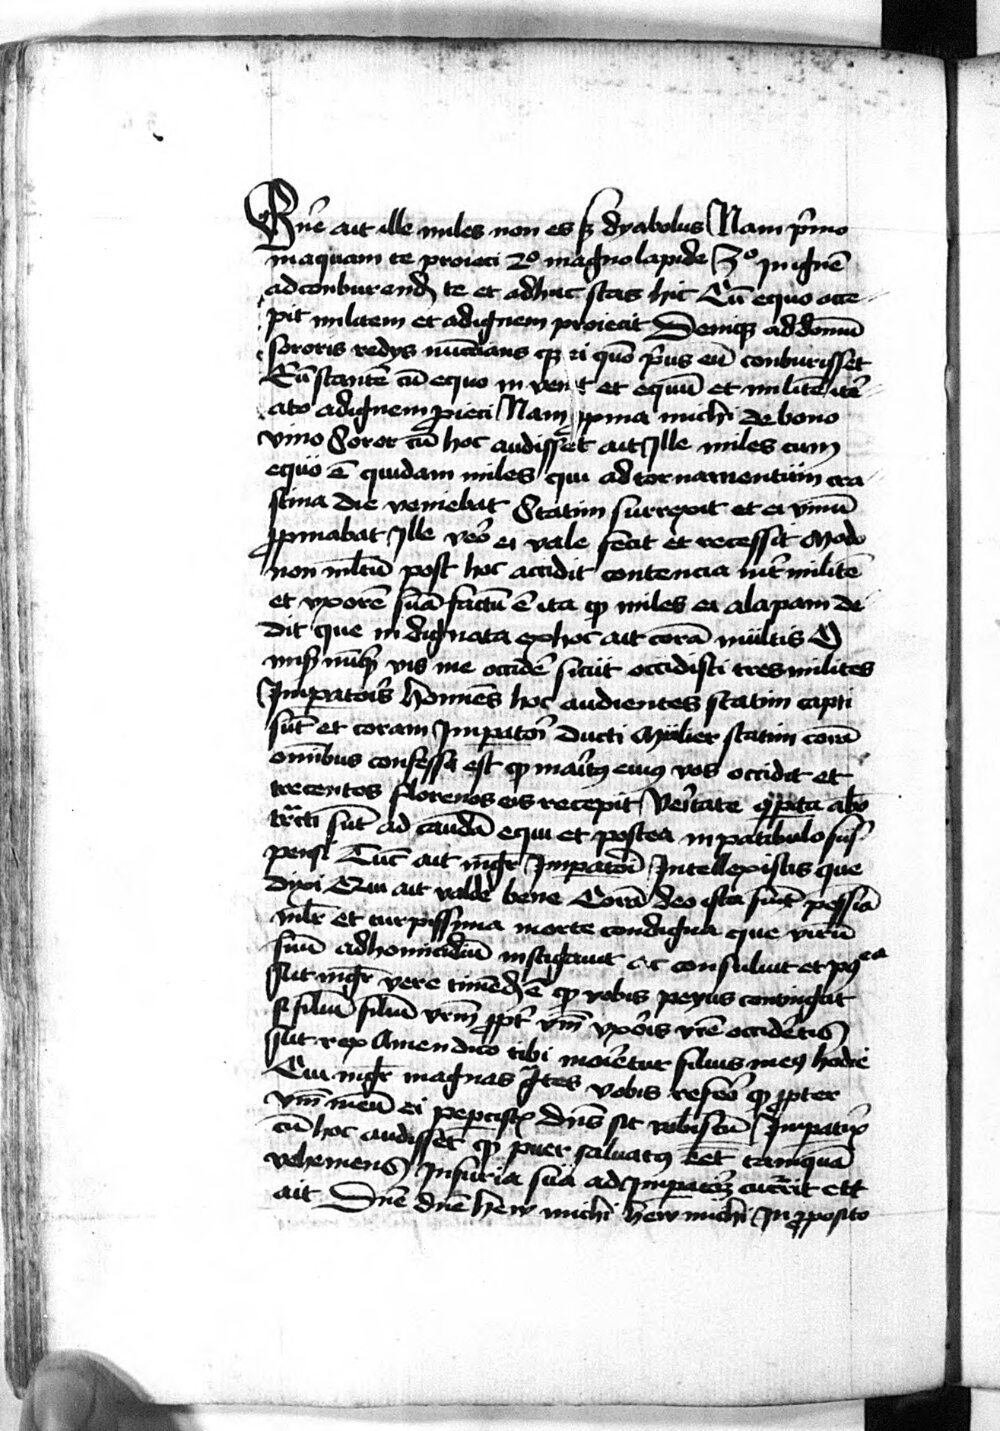 Bn̄e ait ille miles non es sꝫ dyabolus Nam p̄mo
in aquam te proieci 2º magno lapide 3º in ignē
ad conburendꝫ te et adhuc stas hic Cū equo acce
pit militem et ad ignem proiecit Deniqꝫ ad domū
sororis redijt nuncians qꝫ ei quō p̄us eū conburisset
Eū stantē cū equo in venit et equū et militē itē
ato ad ignem ꝓieci Nam ꝓpina michi de bono
vino Soror cū hoc audisset ait Ille miles cum
equo ē quidam miles qui ad tornamentum cra
stina die veniebat Statim surrexit et ei vinū
ꝓpinabat Ille vēo ei vale fecit et recessit Modo
non ml̄tū post hoc accidit contencia int̄ militē
et vxorē suā factū ē ita ꝙ miles ei alapam de
dit que indignata ex hoc ait corā multis O
miꝫ nūqꝫ vis me occidē sicut occidisti tres milites
Imp̄atoris homīes hoc audientes statim capti
sūt et coram Imp̄atori ducti Mulier statim corā
omībus confessa est ꝙ marit9 eius vos occidit et
trecentos florenos eis recepit Veritate ꝯp̄ta abo
tracti sūt ad caudā equi et postea in patibulo sus
pensi Tūc ait mgr̄ Imp̄atori Intellexistis que
dixi Qui ait valde bene Corā deo ista fuit pessīa
ml̄r et turpissima morte condigna que virū
suū ad homicidiū instigauit ac consuluit et p9ea
Ait mgr̄ vere timendꝫ ē ꝙ vobis peyus contingat
si filiū vr̄m ꝓpt̄ v̄m vxoris vr̄e occidētis
Ait rex Amen dico tibi moriētur filius me9 hodie
Cui mgr̄ magnas gr̄tes vobis refero ꝙ ꝓpter
v̄m meū ei peꝑcistꝭ dn̄s sit vobiscū Imp̄atrix
cū hoc audisset ꝙ puer saluat9 eēt tamquā
vehemens in furia sua ad Imp̄atorē cucurrit ett
ait Dn̄e dn̄e hew michi hew michi In ꝓposito